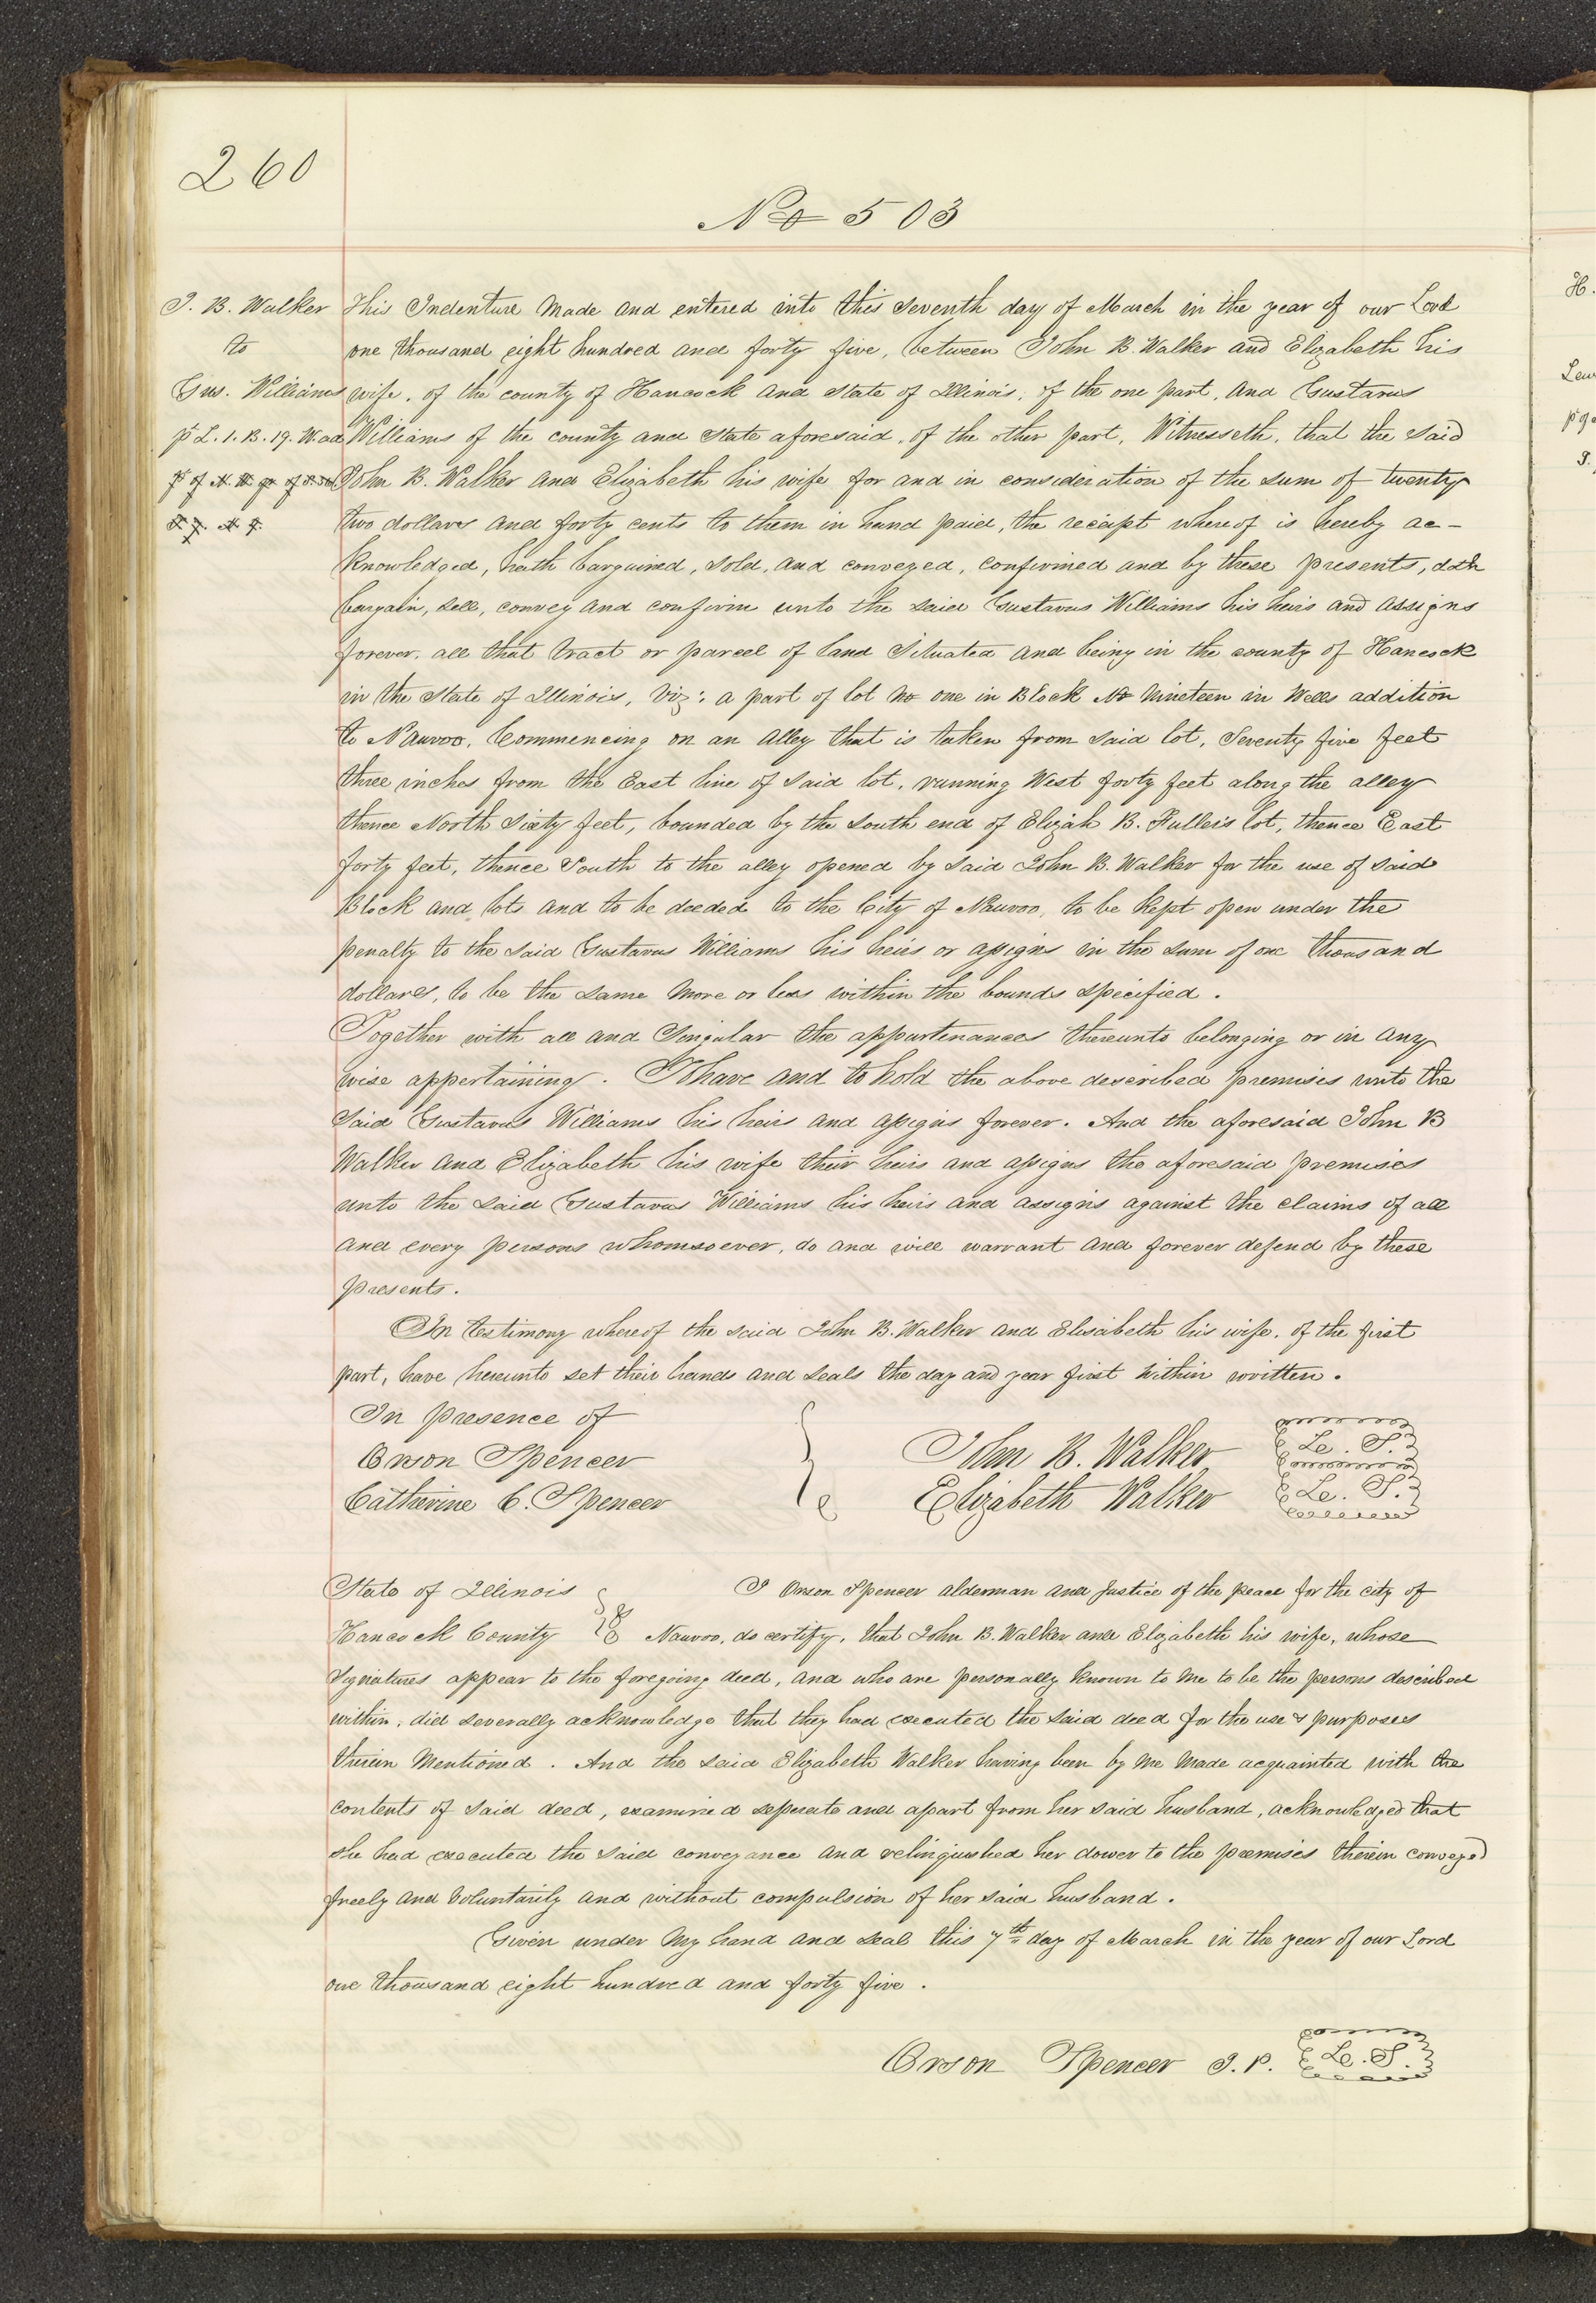 260
No 503
J. B. Walker
to
Gus. Williams
pt L. 1. B. 19. W. ad
This Indenture made and entered into this seventh day of March in the year of our Lord
one thousand eight hundred and forty five, between John B. Walker and Elizabeth his
wife, of the county of Hancock and State of Illinois, of the one part, and Gustavus
Williams of the county and State aforesaid, of the other part, Witnesseth, that the said
John B. Walker and Elizabeth his wife for and in consideration of the sum of twenty
two dollars and forty cents to them in hand paid, the receipt whereof is hereby ac-
knowledged, hath bargained, sold, and conveyed, confirmed and by these presents, doth
bargain, sell, convey and confirm unto the said Gustavus Williams his heirs and assigns
forever, all that tract or parcel of land situated and being in the county of Hancock
in the State of Illinois, viz: a part of lot No one in Block No Nineteen in Wells addition
to Nauvoo, Commencing on an alley that is taken from said lot, Seventy five feet
three inches from the East line of said lot, running West forty feet along the alley
thence North sixty feet, bounded by the South end of Elijah B. Fuller's lot, thence East
forty feet, thence South to the alley opened by said John B. Walker for the use of said
Block and lots and to be deeded to the City of Nauvoo, to be kept open under the
penalty to the said Gustavus Williams his heirs or assigns in the sum of one thousand
dollars, to be the same more or less within the bounds specified.
Together with all and singular the appurtenances thereunto belonging or in any
wise appertaining. To have and to hold the above described premises unto the
said Gustavus Williams his heirs and assigns forever. And the aforesaid John B
Walker and Elizabeth his wife their heirs and assigns the aforesaid premises
unto the said Gustavus Williams his heirs and assigns against the claims of all
and every persons whomsoever, do and will warrant and forever defend by these
presents.
In testimony whereof the said John B. Walker and Elisabeth his wife, of the first
part, have hereunto set their hands and seals the day and year first within written.
In presence of
Orson Spencer
Catharine C. Spencer
John B. Walker L. S.
Elizabeth Walker L. S.
State of Illinois
Hancock County
I Orson Spencer alderman and justice of the peace for the city of
Nauvoo, do certify, that John B. Walker and Elizabeth his wife, whose
signatures appear to the foregoing deed, and who are personally known to me to be the persons described
within, did severally acknowledge that they had executed the said deed for the use & purposes
therein mentioned. And the said Elizabeth Walker having been by me made acquainted with the
contents of said deed, examined seperate and apart from her said husband, acknowledged that
she had executed the said conveyance and relinquished her dower to the premises therein conveyed
freely and voluntarily and without compulsion of her said husband.
Given under my hand and seal this 7th day of March in the year of our Lord
one thousand eight hundred and forty five.
Orson Spencer J. P. L. S.